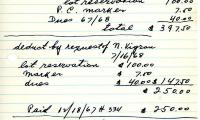 lot reservation 100.00
P.C. marker 7.50
Dues 67/68 40.00
total $397.50
deduct by request of N. Vigran
7/16/68
lot reservation $100.00
marker $ 7.50
dues 40.00 $147.50
$250.00
Paid 10/18/67 # 534 $250.00